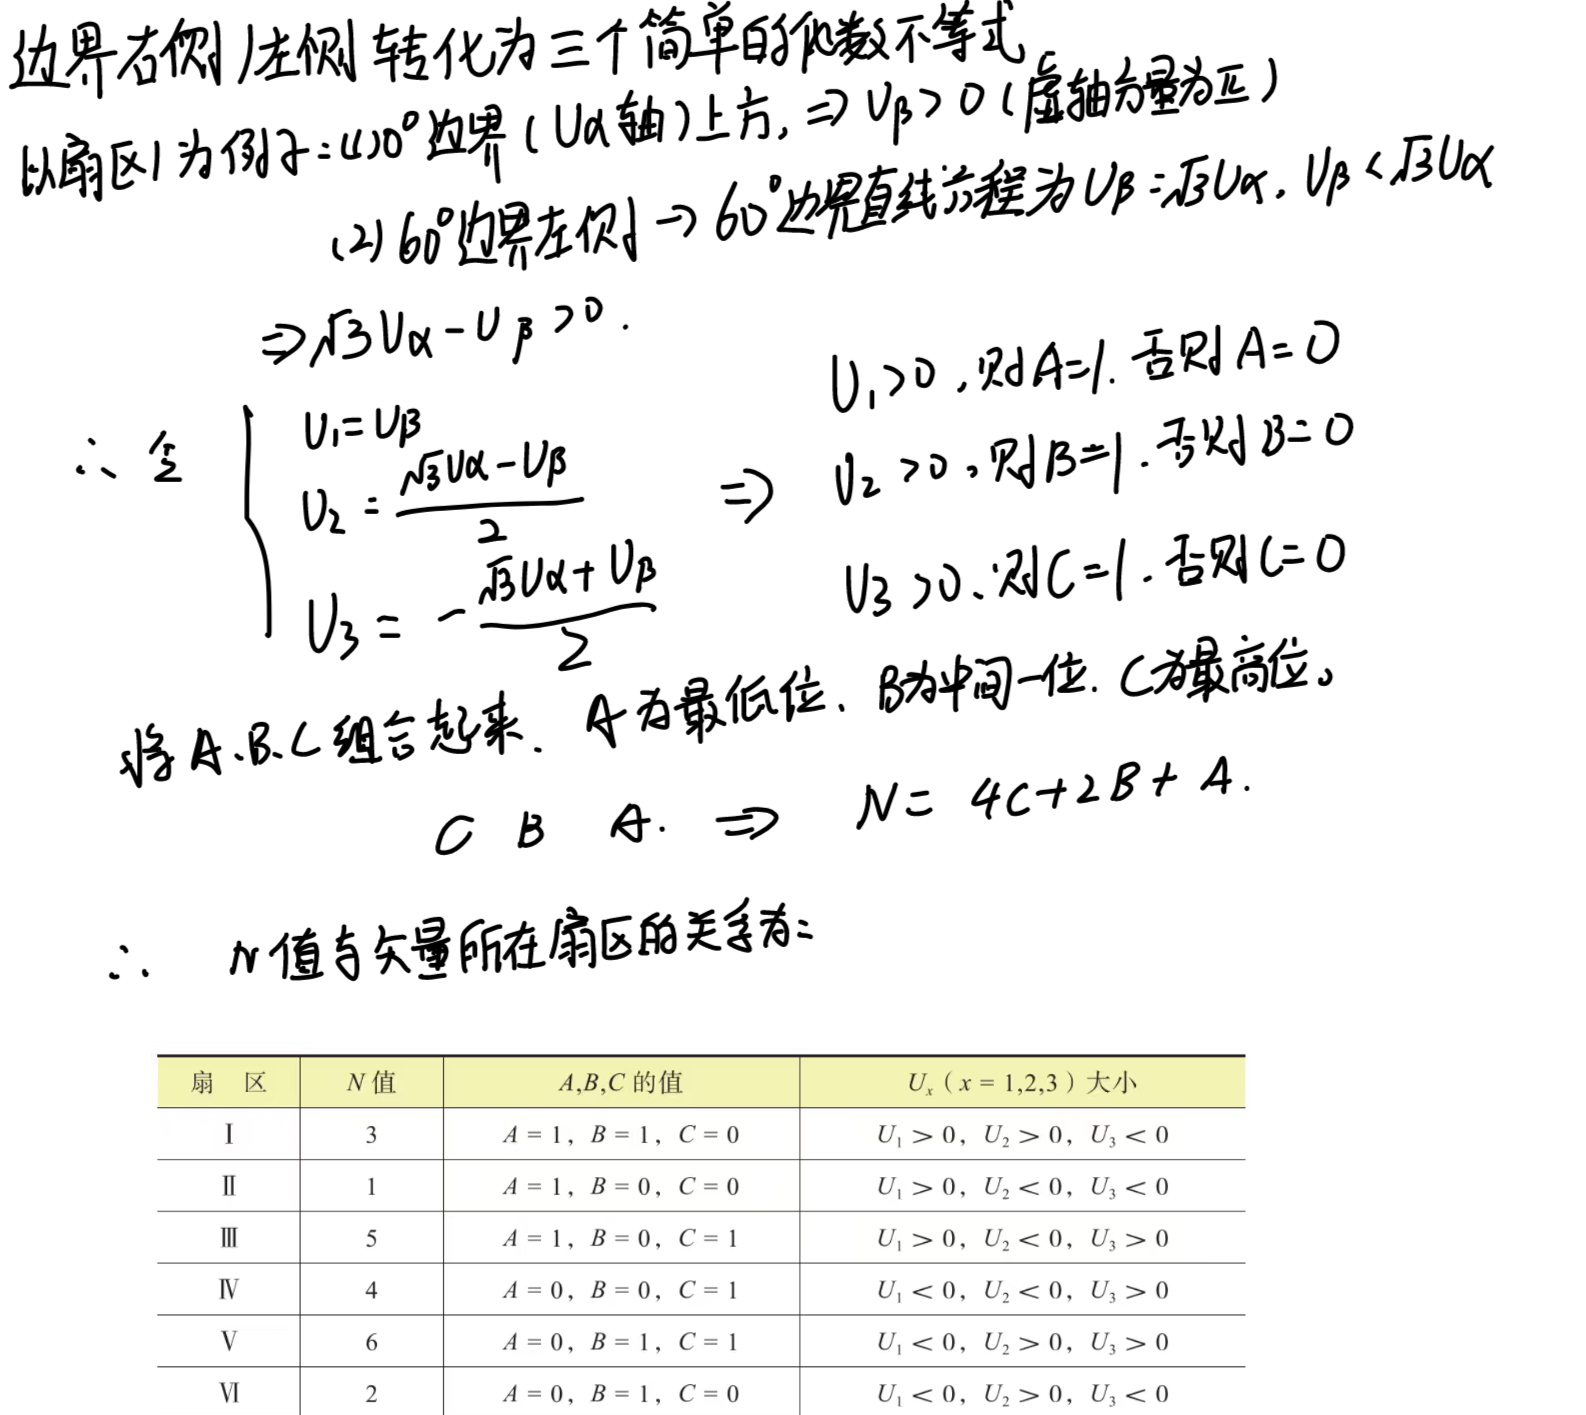 边界右侧/左侧转化为三个简单的代数不等式
以扇区1为例子:(1)0°边界(Uα轴)上方,⇒Uβ>0(虚轴分量为正)
(2)60°边界左侧→60°边界直线方程为Uβ=√3Uα, Uβ<√3Uα
⇒√3Uα-Uβ>0.
∴令 U₁=Uβ
U₂=(√3Uα-Uβ)/2
U₃=-(√3Uα+Uβ)/2
⇒ U₁>0,则A=1.否则A=0
U₂>0,则B=1.否则B=0
U₃>0、则C=1.否则C=0
将A、B、C组合起来、A为最低位、B为中间一位.C为最高位。
C B A. ⇒ N=4C+2B+A.
∴ N值与矢量所在扇区的关系为:
扇 区 N值 A,B,C的值 Uₓ(x=1,2,3)大小
Ⅰ 3 A=1, B=1, C=0 U₁>0, U₂>0, U₃<0
Ⅱ 1 A=1, B=0, C=0 U₁>0, U₂<0, U₃<0
Ⅲ 5 A=1, B=0, C=1 U₁>0, U₂<0, U₃>0
Ⅳ 4 A=0, B=0, C=1 U₁<0, U₂<0, U₃>0
Ⅴ 6 A=0, B=1, C=1 U₁<0, U₂>0, U₃>0
Ⅵ 2 A=0, B=1, C=0 U₁<0, U₂>0, U₃<0